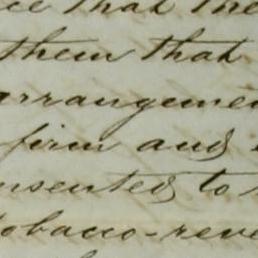 that the
them that
arrangemen
firm and
nsented to
obacco-reve